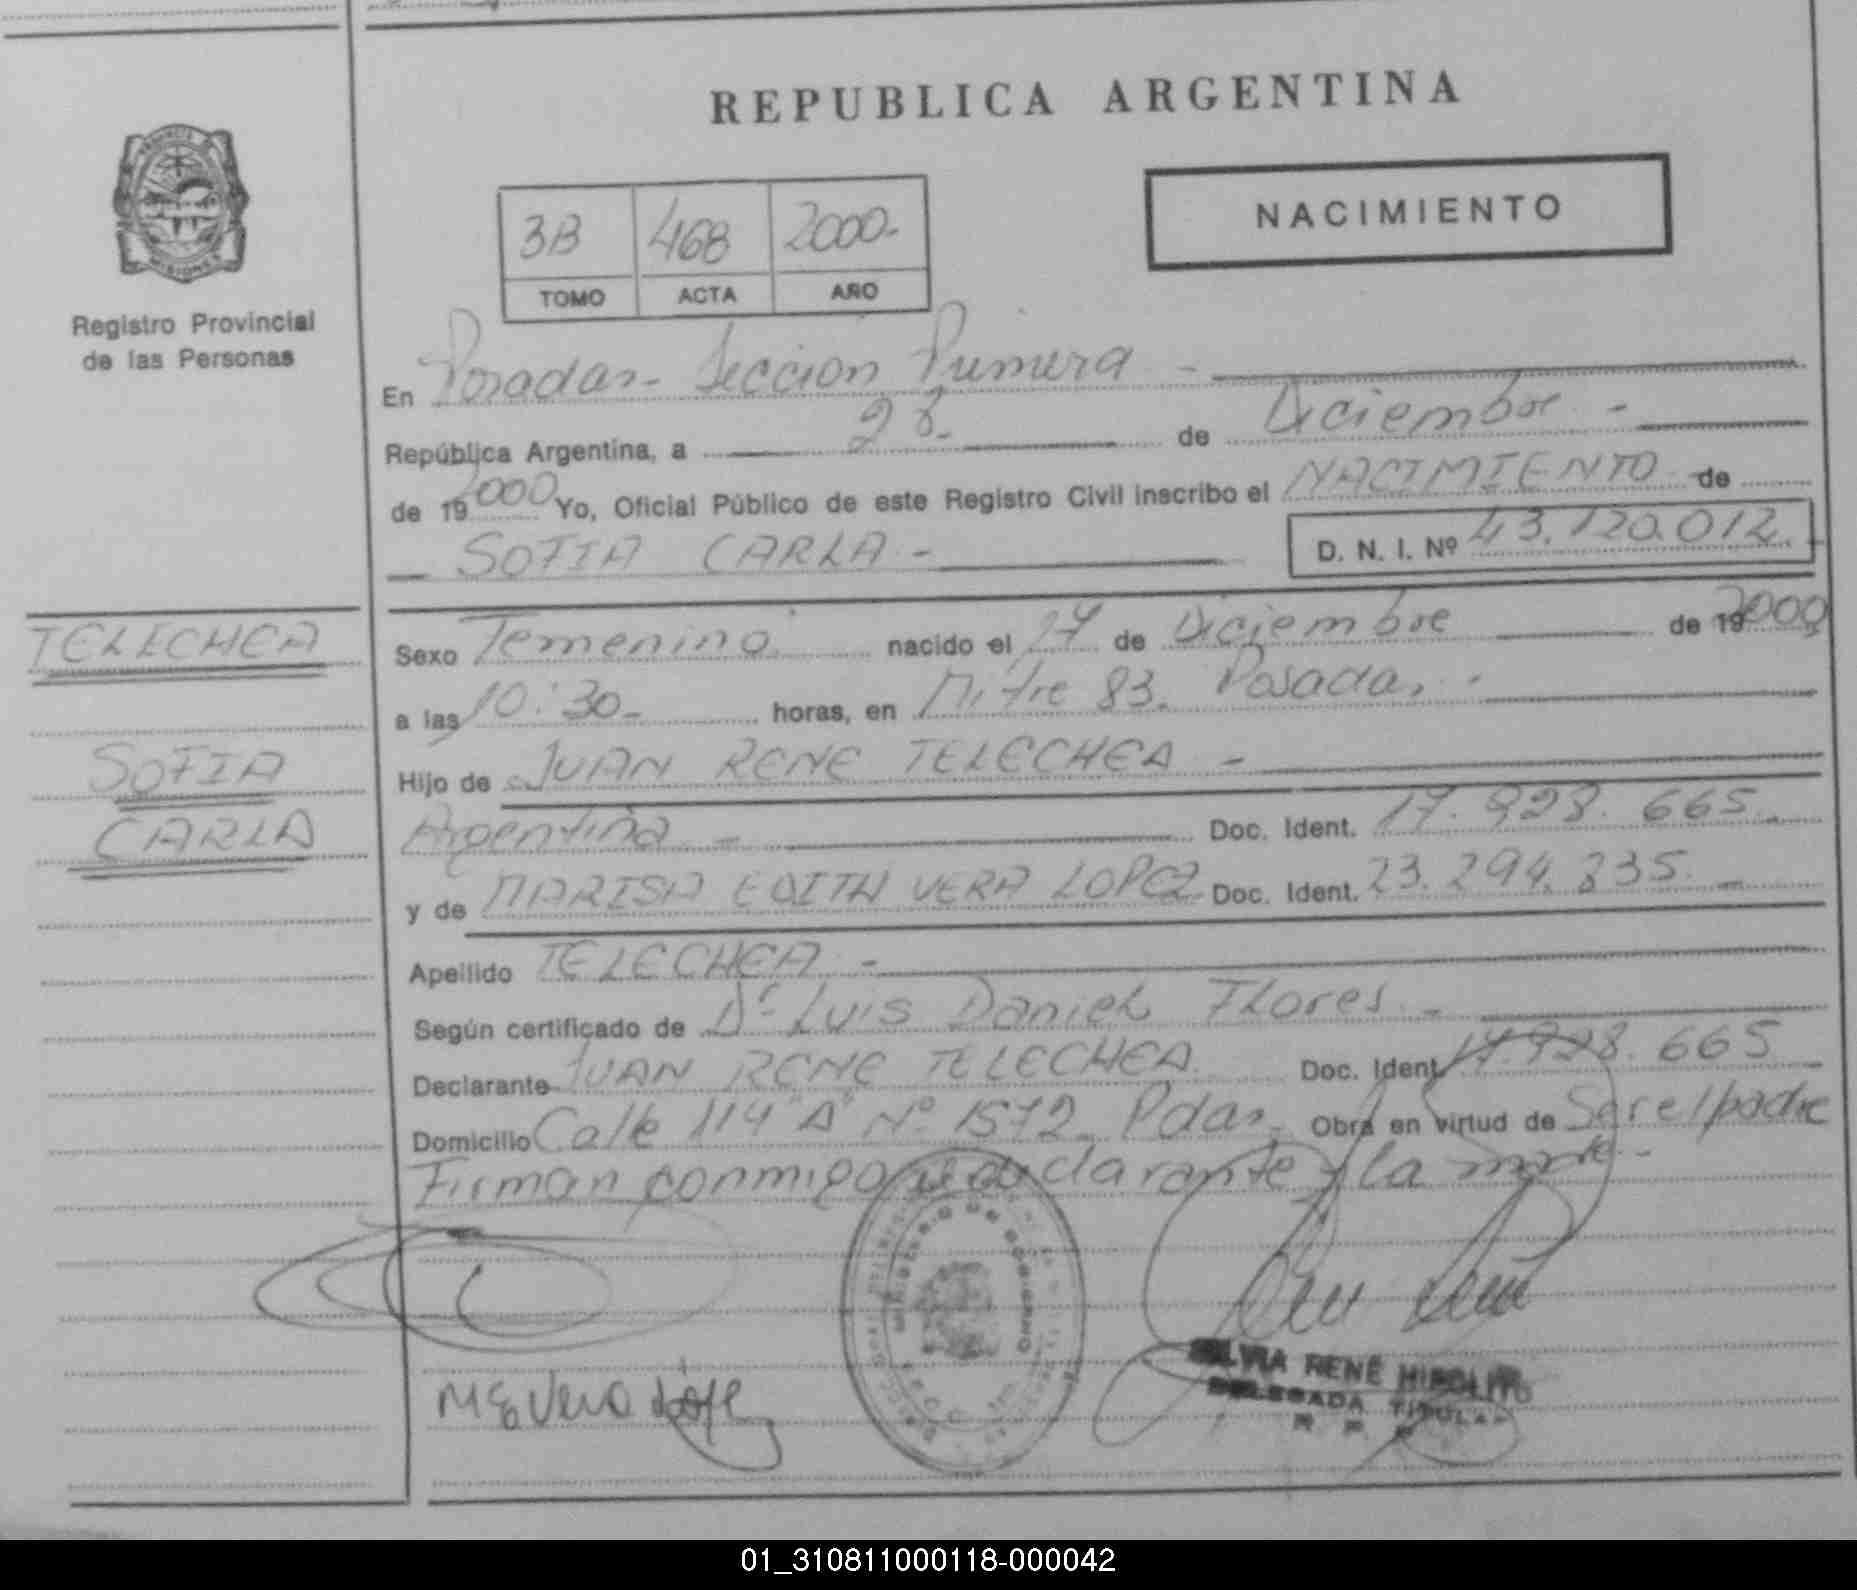 REPUBLICA ARGENTINA
PROVINCIA
MISIONES
Registro Provincial
de las Personas
3B 468 2000.-
TOMO ACTA AÑO
NACIMIENTO
En Posadas- Sección Primera -
República Argentina, a 28.- de Diciembre -
de 19 2000 Yo, Oficial Público de este Registro Civil inscribo el NACIMIENTO de
SOFIA CARLA - D. N. I. Nº 43.120.012.-
TELECHEA
SOFIA
CARLA
Sexo Femenino nacido el 27 de Diciembre de 19 2000
a las 10:30- horas, en Mitre 83. Posadas -
Hijo de JUAN RENE TELECHEA -
Argentina - Doc. Ident. 17. 665 -
y de MARISA EDITH VERA LOPEZ Doc. Ident. 23.294. -
Apellido TELECHEA -
Según certificado de Dr Luis Daniel Flores -
Declarante JUAN RENE TELECHEA Doc. Ident. 665 -
Domicilio Calle 114 "A" Nº 1572 Pdas- Obra en virtud de Ser el padre
Firman conmigo el declarante y la madre-
MINISTERIO DE GOBIERNO
M E Vera López
SILVIA RENÉ HIPOLITO
DELEGADA TITULAR
01_310811000118-000042